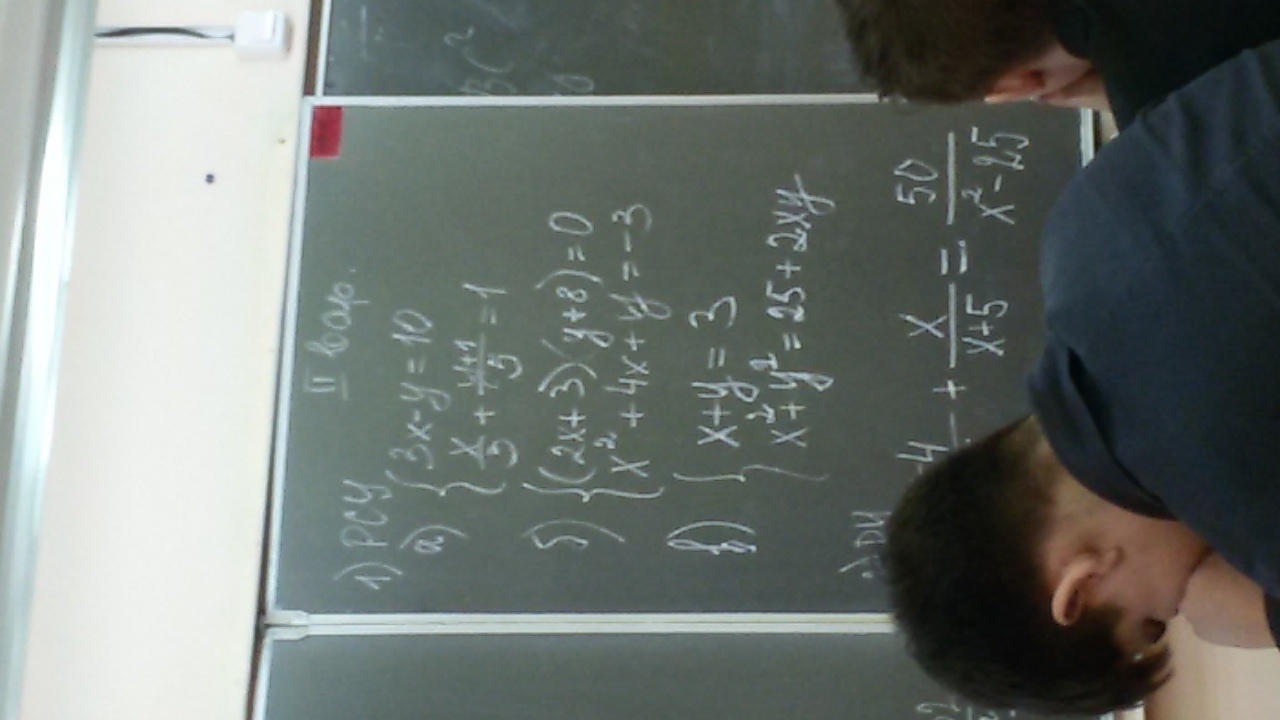 II вар.
1) РСУ
а) { 3x-y=10
x/3 + y+1/5 = 1
б) { (2x+3)(y+8)=0
x² + 4x + y = -3
в) { x+y=3
x²+y²=25+2xy
+ x/x+5 = 50/x²-25